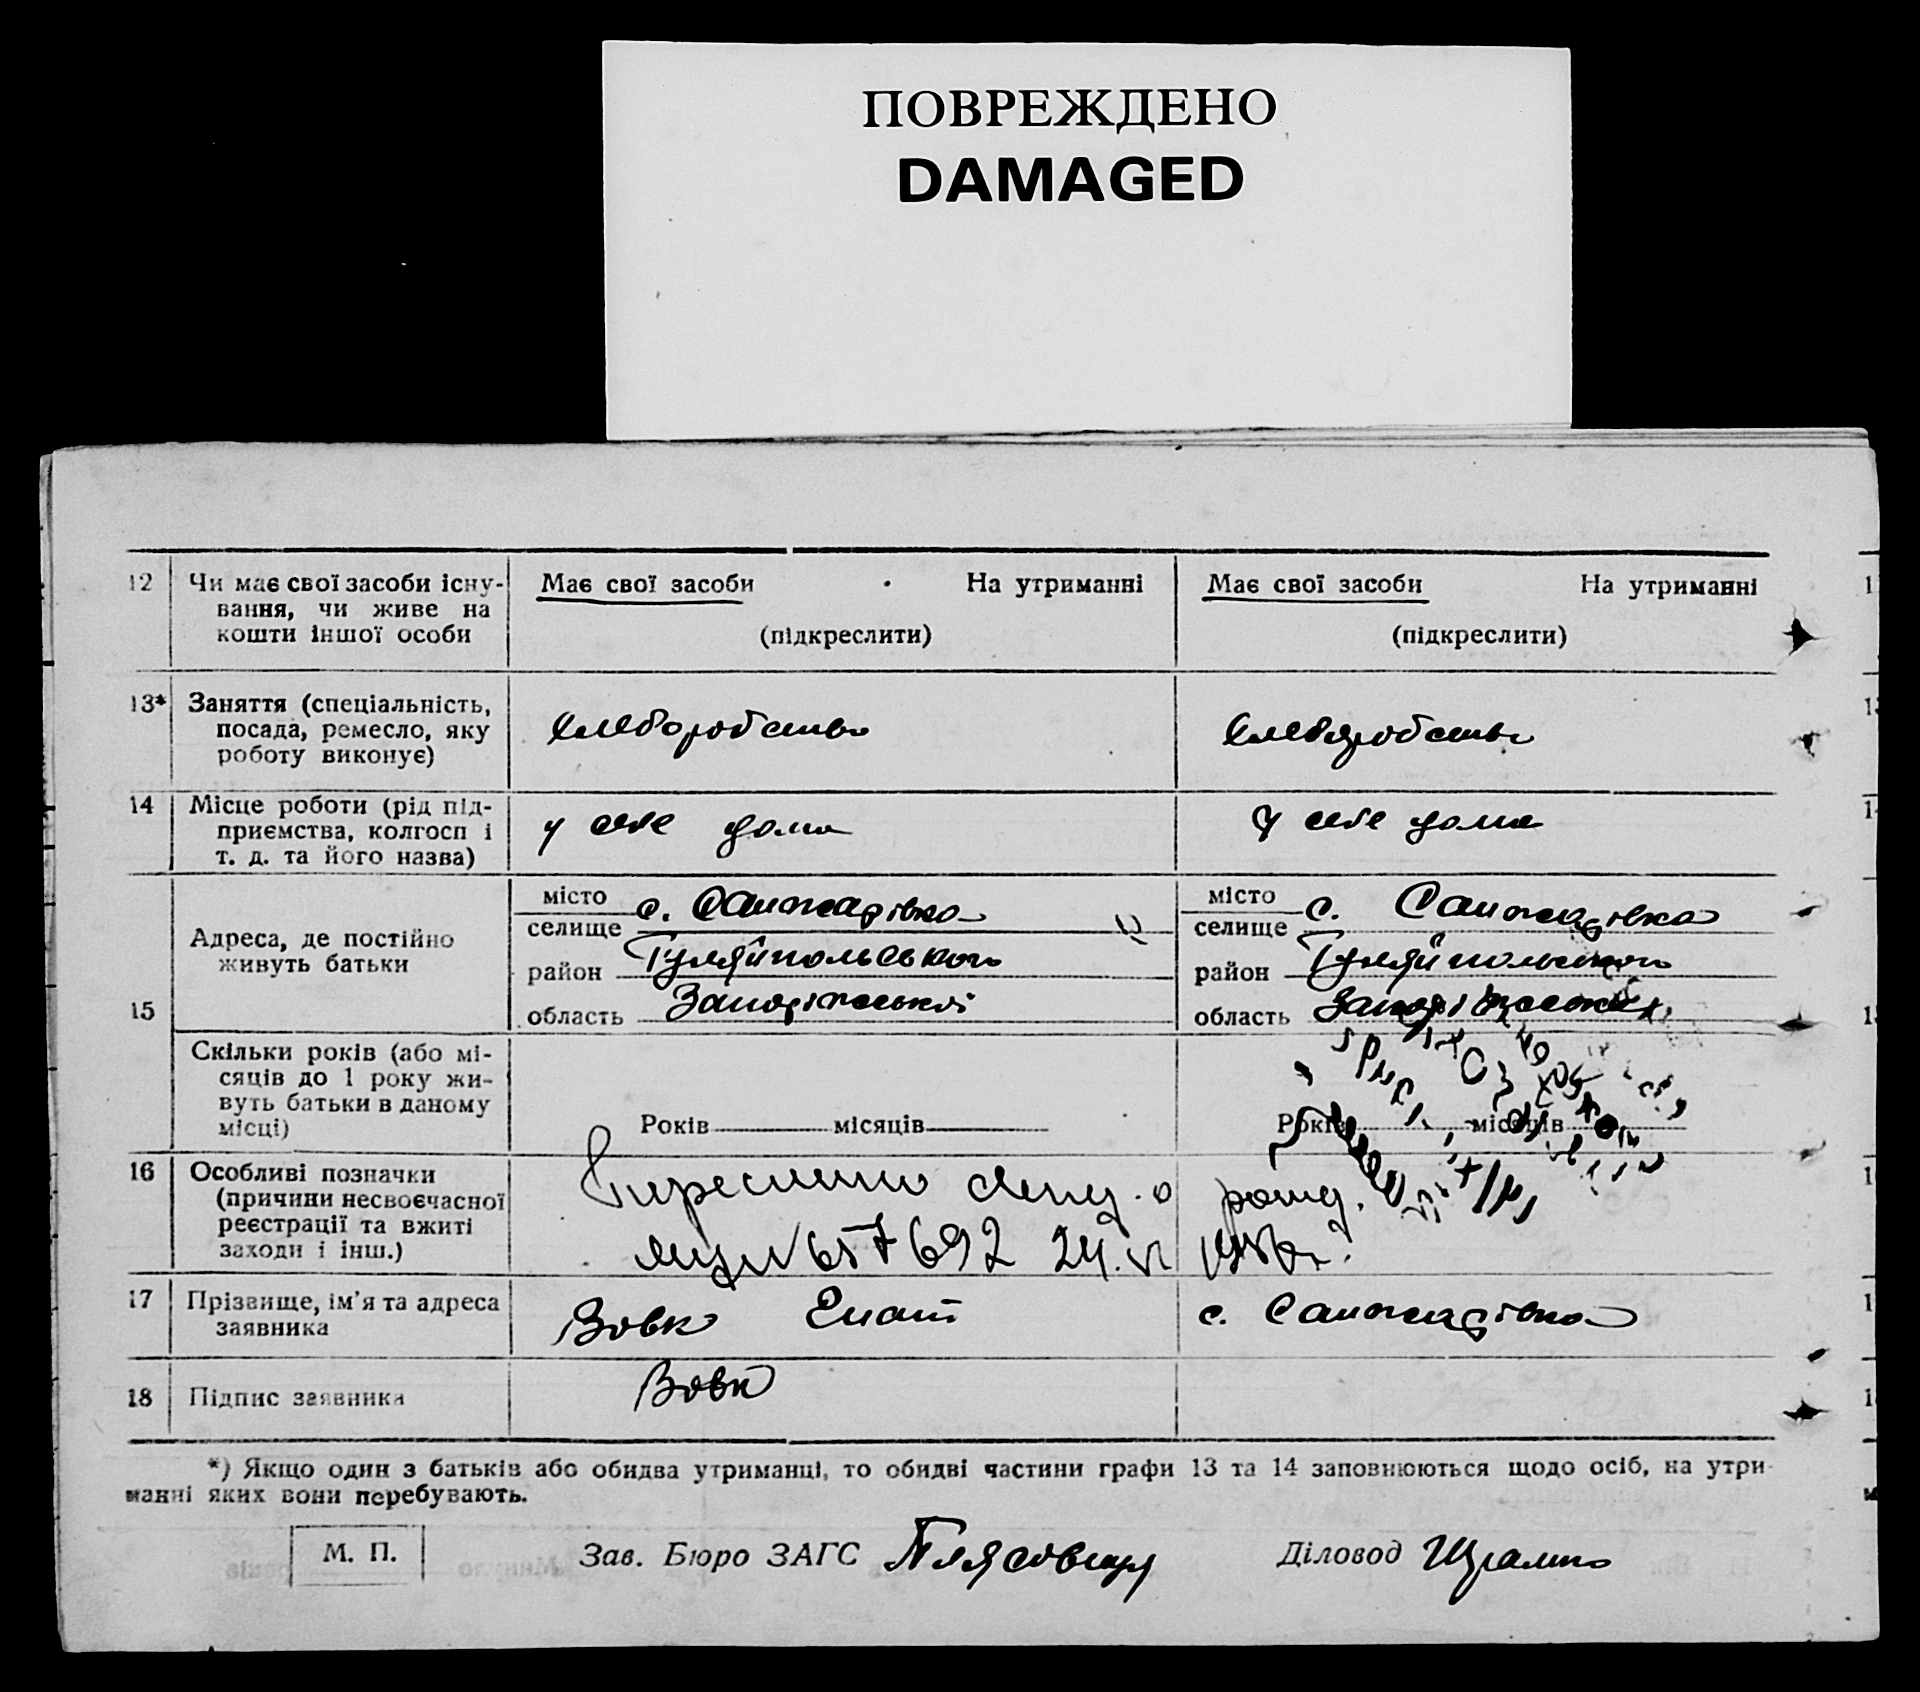 ПОВРЕЖДЕНО
DAMAGED
12 Чи має свої засоби існу-
вання, чи живе на
кошти іншої особи
Має свої засоби На утриманні
(підкреслити)
Має свої засоби На утриманні
(підкреслити)
13* Заняття (спеціальність,
посада, ремесло, яку
роботу виконує)
хлеборобство
хлеборобство
14 Місце роботи (рід під-
приємства, колгосп і
т. д. та його назва)
у себе дома
у себе дома
15 Адреса, де постійно
живуть батьки
місто
селище с. Санжарівка
район Гуляйпольського
область Запоріжської
місто
селище с. Санжарівка
район Гуляйпольського
область Запоріжської
Скільки років (або мі-
сяців до 1 року жи-
вуть батьки в даному
місці)
Років місяців
Років місяців
16 Особливі позначки
(причини несвоєчасної
реєстрації та вжиті
заходи і інш.)
о рожд.
657692 24. VI
17 Прізвище, ім’я та адреса
заявника
Вовк с. Санжарівка
18 Підпис заявника
Вовк
*) Якщо один з батьків або обидва утриманці, то обидві частини графи 13 та 14 заповнюються щодо осіб, на утри-
манні яких вони перебувають.
М. П. Зав. Бюро ЗАГС Діловод